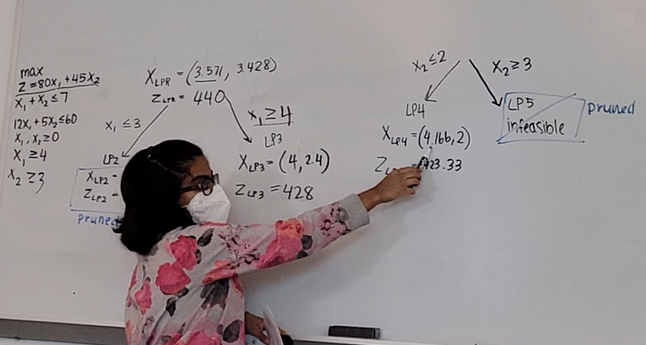 max
Z = 80X₁ + 45X₂
X₁ + X₂ ≤ 7
12X₁ + 5X₂ ≤ 60
X₁, X₂ ≥ 0
X₁ ≥ 4
X₂ ≥ 3
X_LPR = (3.571, 3.428)
Z_LPR = 440
X₁ ≤ 3
X₁ ≥ 4
LP2
X_LP2 =
Z_LP2 =
pruned
LP3
X_LP3 = (4, 2.4)
Z_LP3 = 428
X₂ ≤ 2
X₂ ≥ 3
LP4
X_LP4 = (4.166, 2)
423.33
LP5
infeasible
pruned